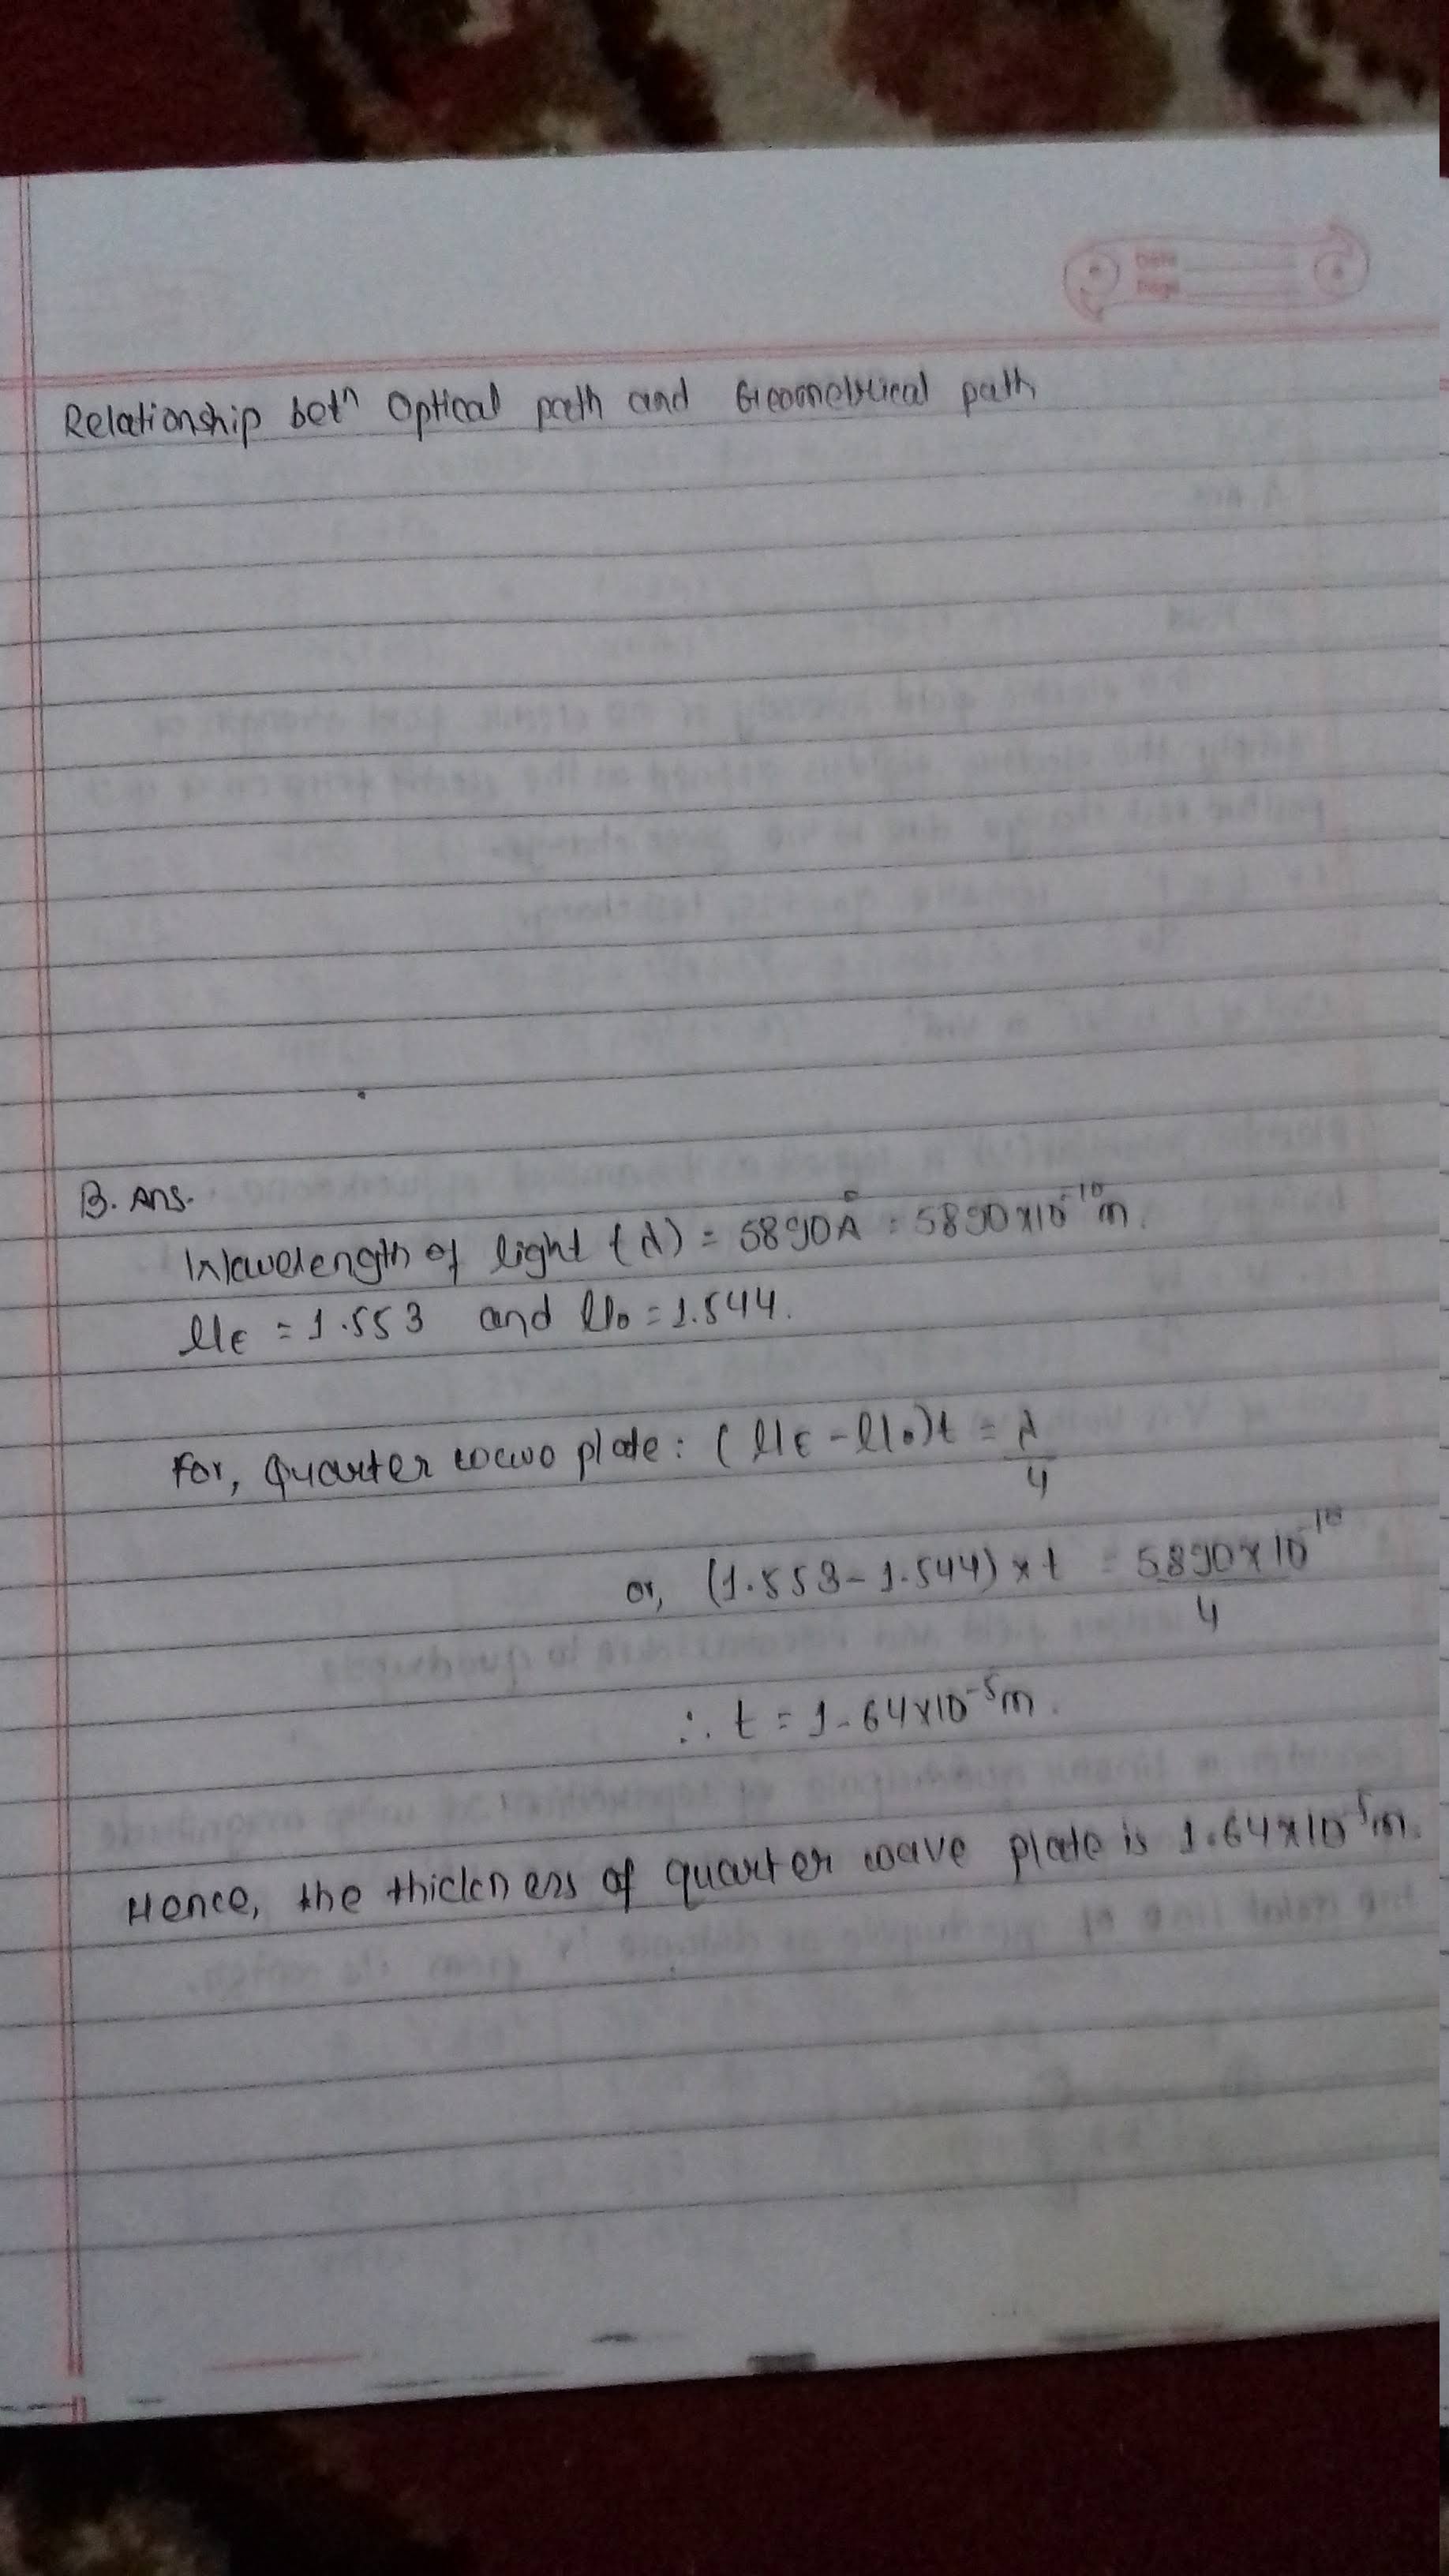 Date
Page
Relationship betⁿ Optical path and Geometrical path
B. Ans.
Wavelength of light (λ) = 5890Å = 5890×10⁻¹⁰m.
μE = 1.553 and μo = 1.544.
For, Quarter wave plate: (μE - μo)t = λ/4
or, (1.553 - 1.544) × t = 5890×10⁻¹⁰/4
∴ t = 1.64×10⁻⁵m.
Hence, the thickness of quarter wave plate is 1.64×10⁻⁵m.